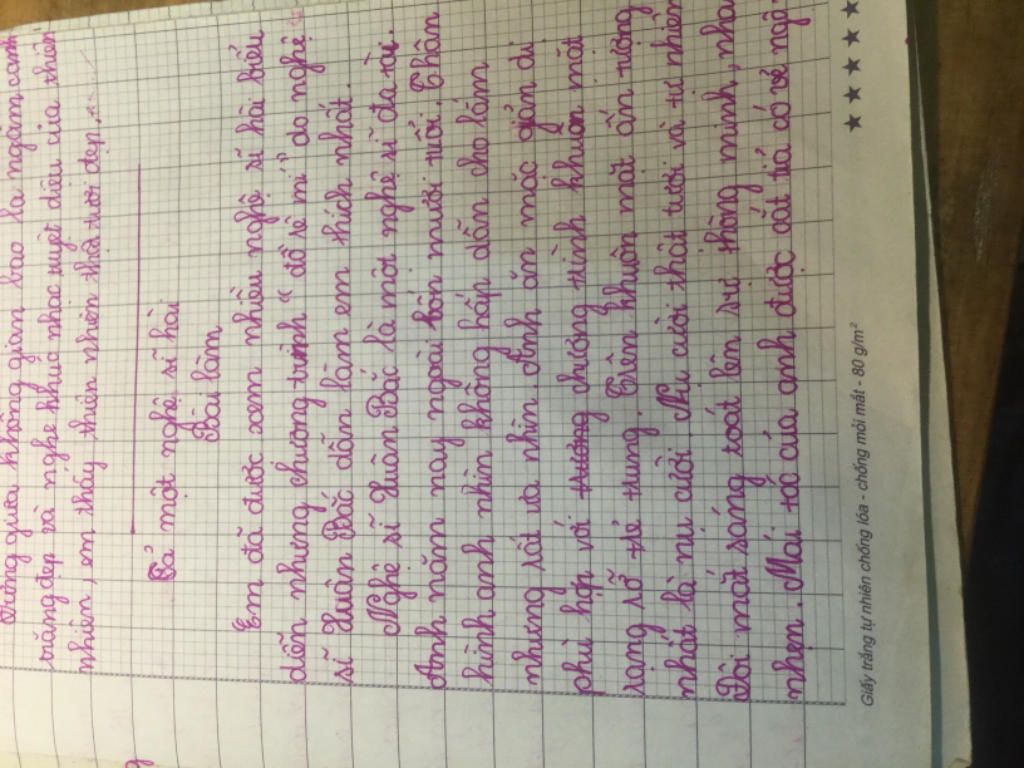 Đường qua không gian bao la ngắm cảnh
trăng đẹp và nghe khúc nhạc tuyệt diệu của thiên
nhiên, em thấy thiên nhiên thật tươi đẹp.
Tả một nghệ sĩ hài
Bài làm
Em đã được xem nhiều nghệ sĩ hài biểu
diễn nhưng chương trình "đồ rê mí" do nghệ
sĩ Xuân Bắc dẫn làm em thích nhất.
Nghệ sĩ Xuân Bắc là một nghệ sĩ đa tài.
Anh năm nay ngoài bốn mười tuổi. Thân
hình anh nhìn không hấp dẫn cho lắm
nhưng rất ưa nhìn. Anh ăn mặc giản dị
phù hợp với chương trình khuôn mặt
rạng rỡ trẻ trung. Trên khuôn mặt ấn tượng
nhất là nụ cười. Nụ cười thật tươi và tự nhiên
Đôi mắt sáng toát lên sự thông minh, nhanh
nhẹn. Mái tóc của anh được cắt tỉa có vẻ ngộ
Giấy trắng tự nhiên chống lóa - chống mỏi mắt - 80 g/m²